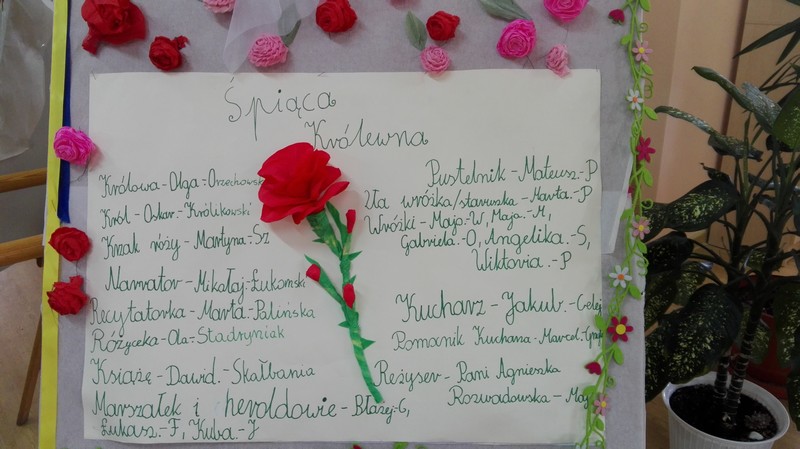 Śpiąca
Królewna
Królowa-Olga-Orzechowsk
Król-Oskar-Królikowski
Krzak róży-Martyna-Sz
Narrator-Mikołaj-Łukomski
Recytatorka-Marta-Palińska
Różyczka-Ola-Stadryniak
Książę-Dawid-Skałbania
Marszałek i heroldowie-Błażej-G,
Łukasz-F, Kuba-J
Pustelnik-Mateusz-P
Zła wróżka/staruszka-Marta-P
Wróżki-Maja-W, Maja-M,
Gabriela-O, Angelika-S,
Wiktoria-P
Kucharz-Jakub-Celej
Pomocnik Kucharza-Marcel
Reżyser-Pani Agnieszka
Rozwadowska-May